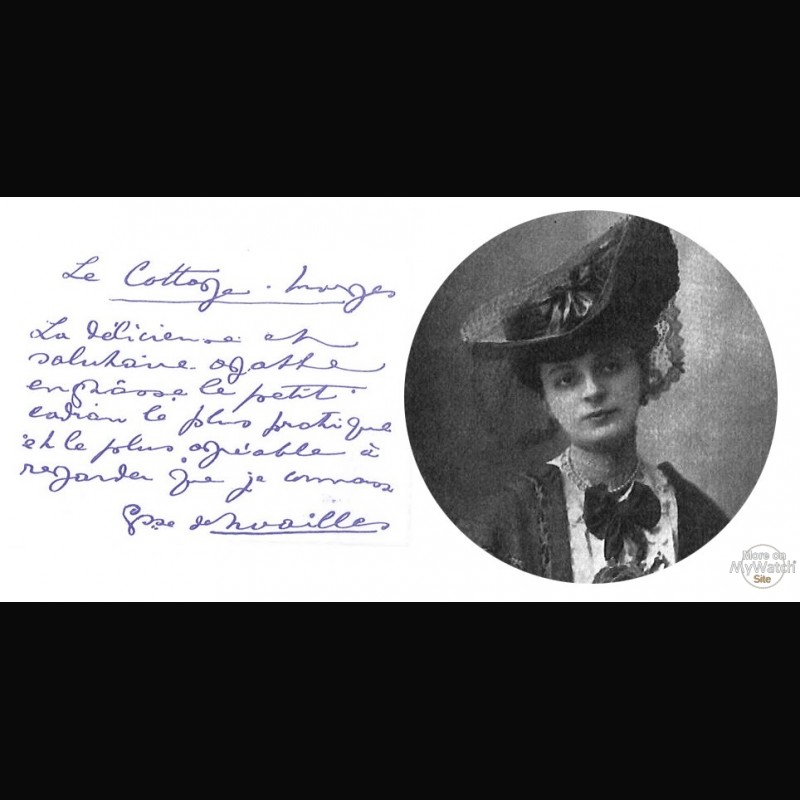 Le Cottage. Morges
La délicieuse et
salutaire agathe
enchâsse le petit
cadran le plus pratique
et le plus agréable à
regarder que je connaisse
Ctsse de Noailles
More on
MyWatch
Site